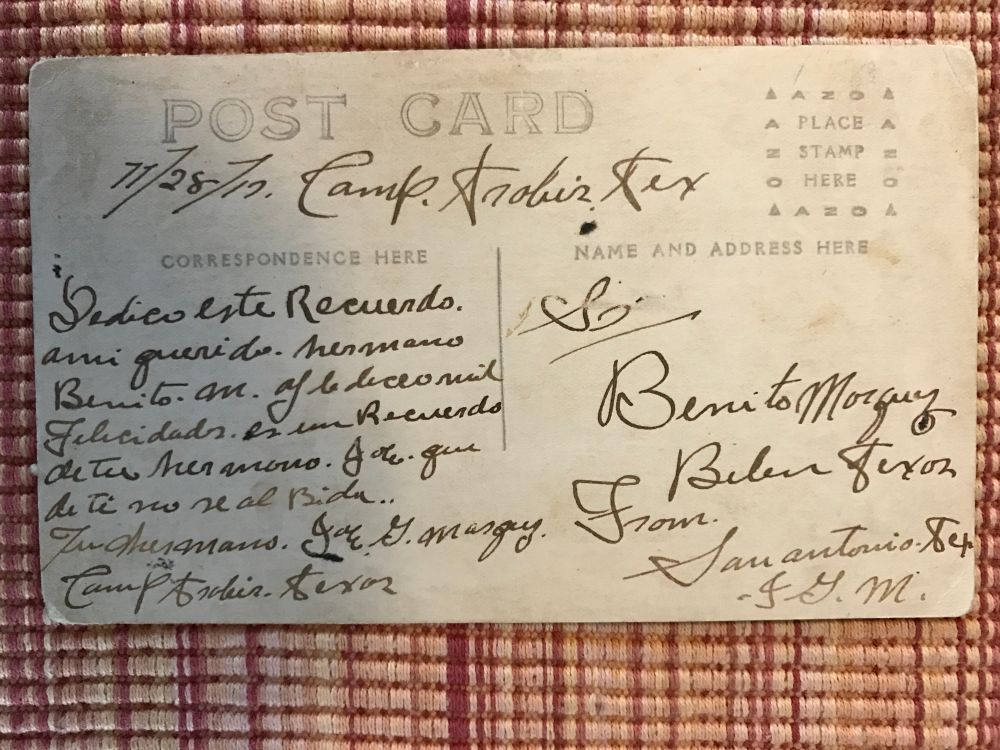 POST CARD
▲ A Z O ▲
PLACE
STAMP
HERE
▲ A Z O ▲
11/28/17. Camp. Trabis. Tex
CORRESPONDENCE HERE
NAME AND ADDRESS HERE
Dedico este Recuerdo.
a mi querido. hermano
Benito. M. y le deceo mil
Felicidades. es un Recuerdo
de tu hermano. Joe. que
de ti no se al Bida..
Tu hermano. Joe. G. Marquez.
Camp Trabis. Texas
Sr
Benito Marquez
Belen Texas
From.
San antonio. Tex
- J G. M.